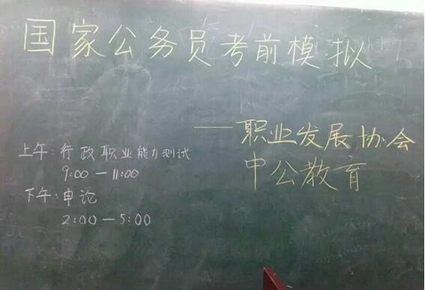 国家公务员考前模拟
——职业发展协会
中公教育
上午 行政职业能力测试
9:00—11:00
下午 申论
2:00—5:00